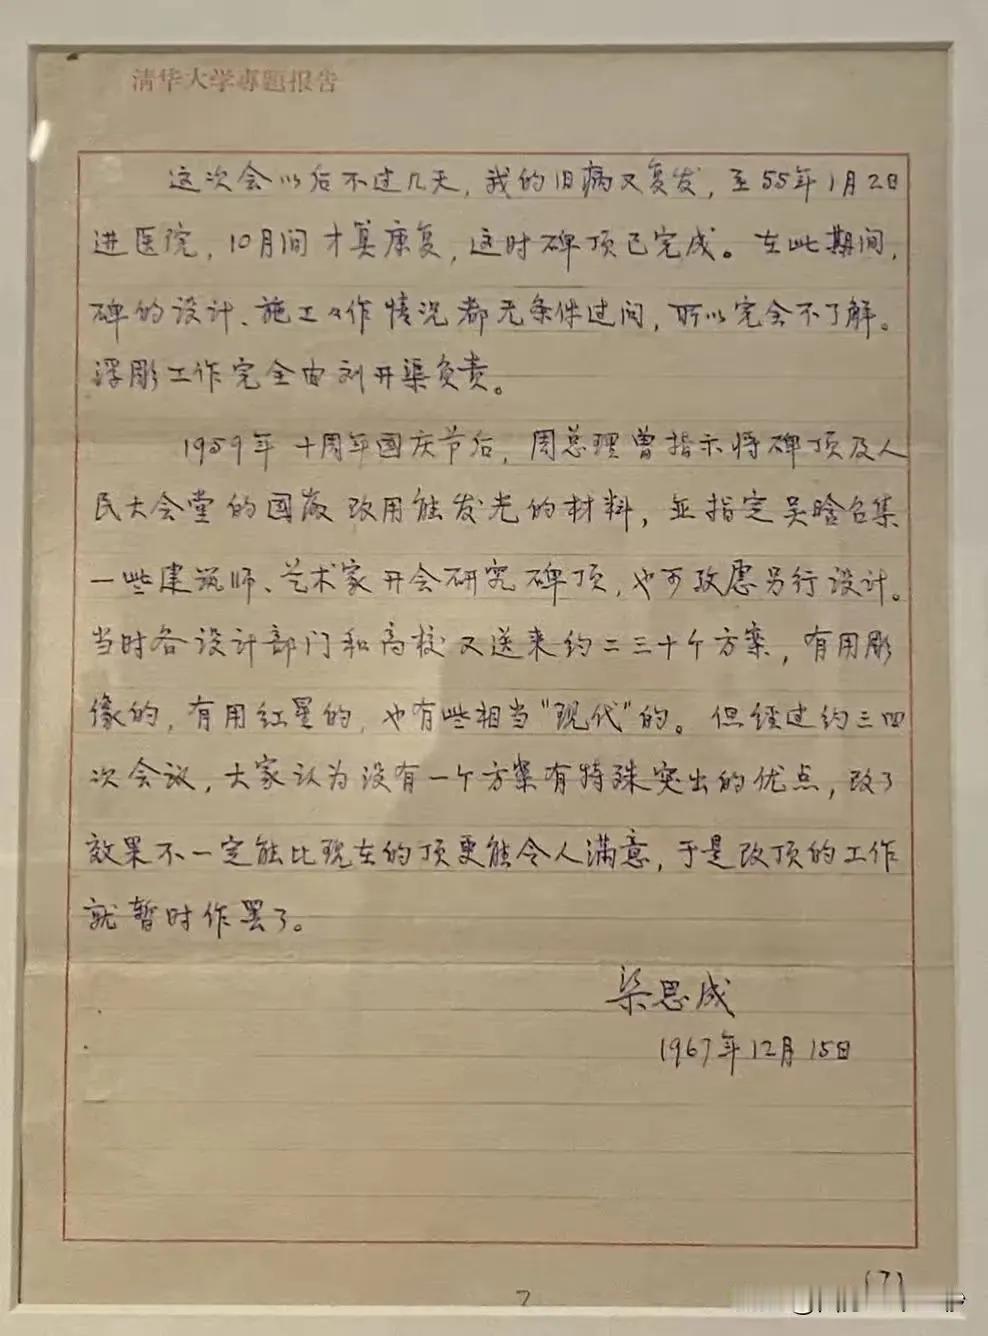 清华大学專題报告
这次会以后不过几天，我的旧病又复发，至55年1月2日
进医院，10月间才算康复，这时碑顶已完成。在此期间，
碑的设计、施工々作情况都无条件过问，所以完全不了解。
浮彫工作完全由刘开渠负责。
1959年十周年国庆节后，周总理曾指示将碑顶及人
民大会堂的国徽改用能发光的材料，並指定吴晗召集
一些建筑师、艺术家开会研究碑顶，也可攷虑另行设计。
当时各设计部门和高校又送来约二三十个方案，有用彫
像的，有用红星的，也有些相当"现代"的。但经过约三四
次会议，大家认为没有一个方案有特殊突出的优点，改了
效果不一定能比现在的顶更能令人满意，于是改顶的工作
就暂时作罢了。
梁思成
1967年12月15日
(7)
7